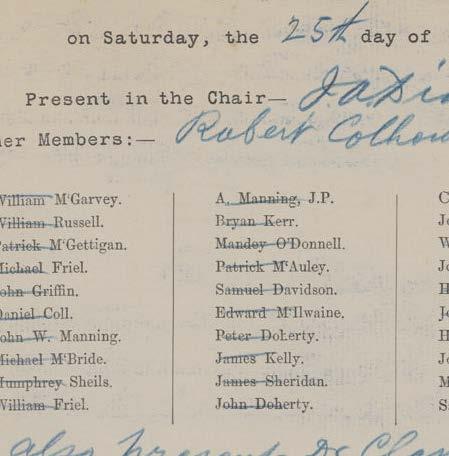 on Saturday, the 25th day of
Present in the Chair—
her Members:— Robert
William M‘Garvey.
William Russell.
Patrick M‘Gettigan.
Michael Friel.
John Griffin.
Daniel Coll.
John W. Manning.
Michael M‘Bride.
Humphrey Sheils.
William Friel.
A. Manning, J.P.
Bryan Kerr.
Mandey O‘Donnell.
Patrick M‘Auley.
Samuel Davidson.
Edward M‘Ilwaine.
Peter Doherty.
James Kelly.
James Sheridan.
John Doherty.
also present